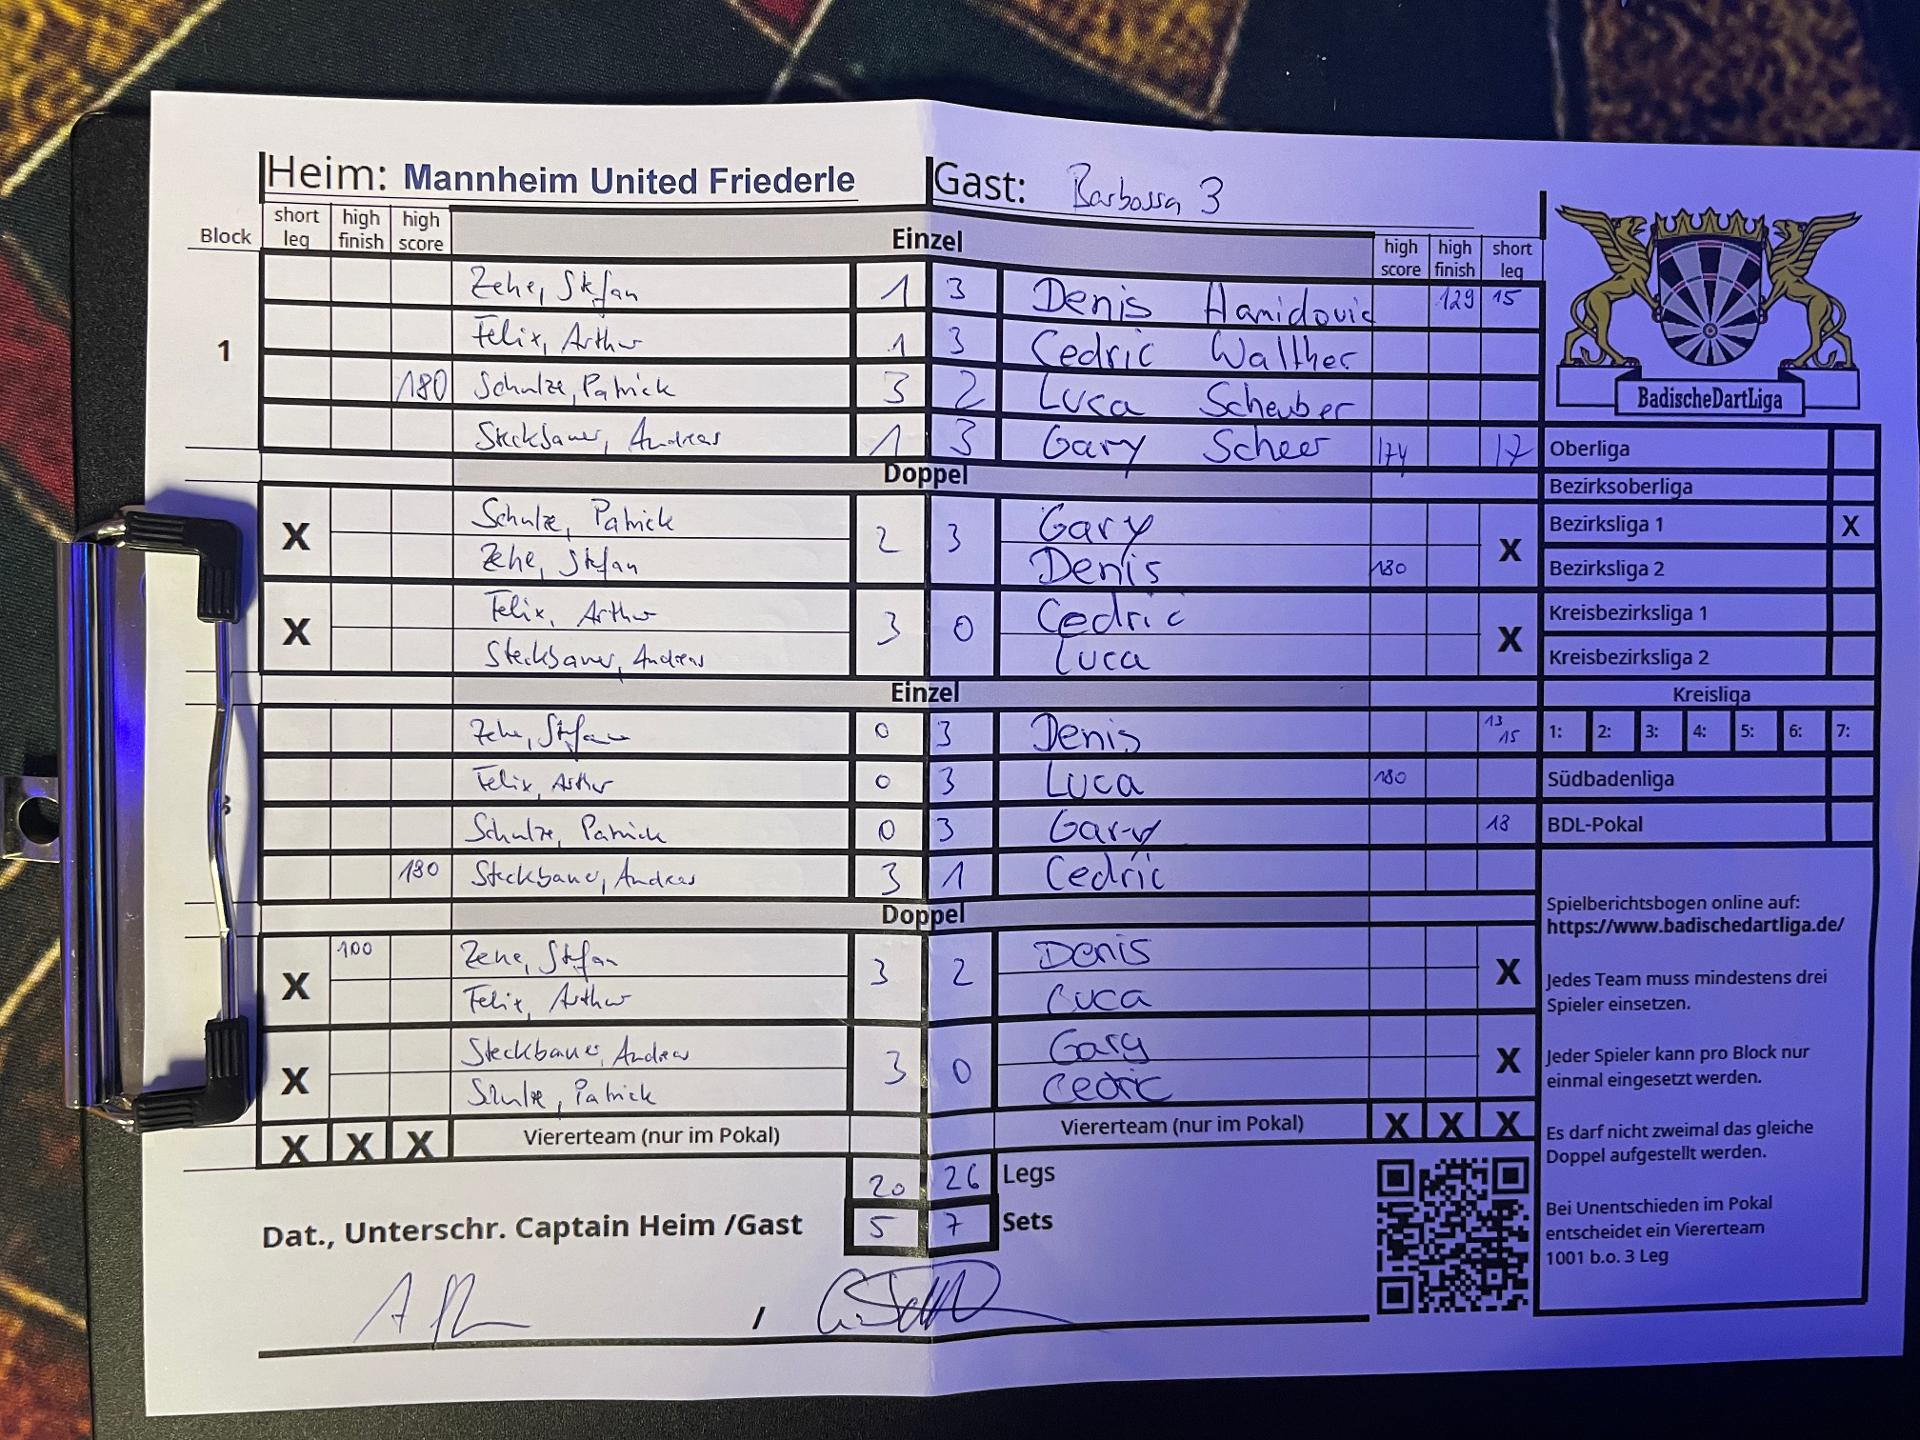 Heim: Mannheim United Friederle Gast: Barbossa 3
Block short leg high finish high score Einzel high score high finish short leg
Zehe, Stefan 1 3 Denis Hamidovic 129 15
1 Felix, Arthur 1 3 Cedric Walther
180 Schulze, Patrick 3 2 Luca Scheuber
Steckbauer, Andreas 1 3 Gary Scheer 174 17
Doppel
X Schulze, Patrick 2 3 Gary X
Zehe, Stefan Denis 180
X Felix, Arthur 3 0 Cedric X
Steckbauer, Andreas Luca
Einzel
Zehe, Stefan 0 3 Denis 13 15
Felix, Arthur 0 3 Luca 180
Schulze, Patrick 0 3 Gary 18
180 Steckbauer, Andreas 3 1 Cedric
Doppel
X 100 Zehe, Stefan 3 2 Denis X
Felix, Arthur Luca
X Steckbauer, Andreas 3 0 Gary X
Schulze, Patrick Cedric
X X X Viererteam (nur im Pokal) Viererteam (nur im Pokal) X X X
20 26 Legs
Dat., Unterschr. Captain Heim /Gast 5 7 Sets
/
BadischeDartLiga
Oberliga
Bezirksoberliga
Bezirksliga 1 X
Bezirksliga 2
Kreisbezirksliga 1
Kreisbezirksliga 2
Kreisliga
1: 2: 3: 4: 5: 6: 7:
Südbadenliga
BDL-Pokal
Spielberichtsbogen online auf:
https://www.badischedartliga.de/
Jedes Team muss mindestens drei
Spieler einsetzen.
Jeder Spieler kann pro Block nur
einmal eingesetzt werden.
Es darf nicht zweimal das gleiche
Doppel aufgestellt werden.
Bei Unentschieden im Pokal
entscheidet ein Viererteam
1001 b.o. 3 Leg